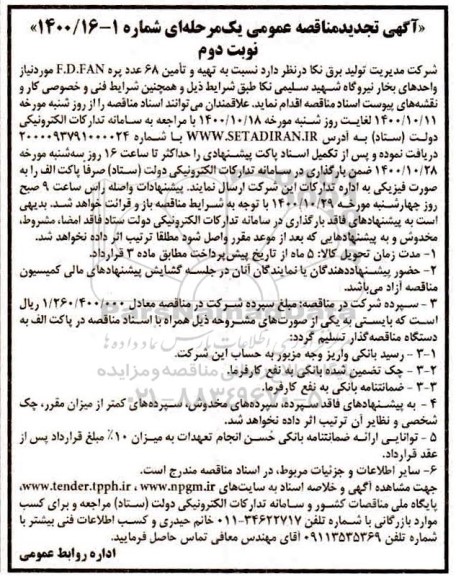 «آگهی تجدیدمناقصه عمومی یک‌مرحله‌ای شماره ۱-۱۴۰۰/۱۶»
نوبت دوم
شرکت مدیریت تولید برق نکا درنظر دارد نسبت به تهیه و تأمین ۶۸ عدد پره F.D.FAN موردنیاز
واحدهای بخار نیروگاه شهید سلیمی نکا طبق شرایط ذیل و همچنین شرایط فنی و خصوصی کار و
نقشه‌های پیوست اسناد مناقصه اقدام نماید. علاقمندان می‌توانند اسناد مناقصه را از روز شنبه مورخه
۱۴۰۰/۱۰/۱۱ لغایت روز شنبه مورخه ۱۴۰۰/۱۰/۱۸ با مراجعه به سامانه تدارکات الکترونیکی
دولت (ستاد) به آدرس WWW.SETADIRAN.IR با شماره ۲۰۰۰۰۹۳۷۹۱۰۰۰۰۲۴
دریافت نموده و پس از تکمیل اسناد پاکت پیشنهادی را حداکثر تا ساعت ۱۶ روز سه‌شنبه مورخه
۱۴۰۰/۱۰/۲۸ ضمن بارگذاری در سامانه تدارکات الکترونیکی دولت (ستاد) صرفا پاکت الف را به
صورت فیزیکی به اداره تدارکات این شرکت ارسال نمایند. پیشنهادات واصله راس ساعت ۹ صبح
روز چهارشنبه مورخه ۱۴۰۰/۱۰/۲۹ با توجه به شرایط مناقصه باز و قرائت خواهد شد. بدیهی
است به پیشنهادهای فاقد بارگذاری در سامانه تدارکات الکترونیکی دولت ستاد فاقد امضا، مشروط،
مخدوش و به پیشنهادهایی که بعد از موعد مقرر واصل شود مطلقا ترتیب اثر داده نخواهد شد.
۱- مدت زمان تحویل کالا: ۵ ماه از تاریخ پیش‌پرداخت مطابق ماده ۳ قرارداد.
۲- حضور پیشنهاددهندگان یا نمایندگان آنان در جلسه گشایش پیشنهادهای مالی کمیسیون
مناقصه آزاد می‌باشد.
۳ - سپرده شرکت در مناقصه: مبلغ سپرده شرکت در مناقصه معادل ۱/۲۶۰/۴۰۰/۰۰۰ ریال
است که بایستی به یکی از صورت‌های مشروحه ذیل همراه با اسناد مناقصه در پاکت الف به
دستگاه مناقصه‌گذار تسلیم گردد:
۳-۱ - رسید بانکی واریز وجه مزبور به حساب این شرکت.
۳-۲ - چک تضمین شده بانکی به نفع کارفرما.
۳-۳ - ضمانتنامه بانکی به نفع کارفرما.
۴ - به پیشنهادهای فاقد سپرده، سپرده‌های مخدوش، سپرده‌های کمتر از میزان مقرر، چک
شخصی و نظایر آن ترتیب اثر داده نخواهد شد.
۵ - توانایی ارائه ضمانتنامه بانکی حسن انجام تعهدات به میزان ۱۰٪ مبلغ قرارداد پس از
عقد قرارداد.
۶- سایر اطلاعات و جزئیات مربوط، در اسناد مناقصه مندرج است.
جهت مشاهده آگهی و خلاصه اسناد به سایت‌های www.npgm.ir ، www.tender.tpph.ir،
پایگاه ملی مناقصات کشور و سامانه تدارکات الکترونیکی دولت (ستاد) مراجعه و برای کسب
موارد بازرگانی با شماره تلفن ۳۴۶۲۲۷۱۷-۰۱۱ خانم حیدری و کسب اطلاعات فنی بیشتر با
شماره تلفن ۰۹۱۱۳۵۳۵۳۶۹ آقای مهندس معافی تماس حاصل فرمایید.
اداره روابط عمومی